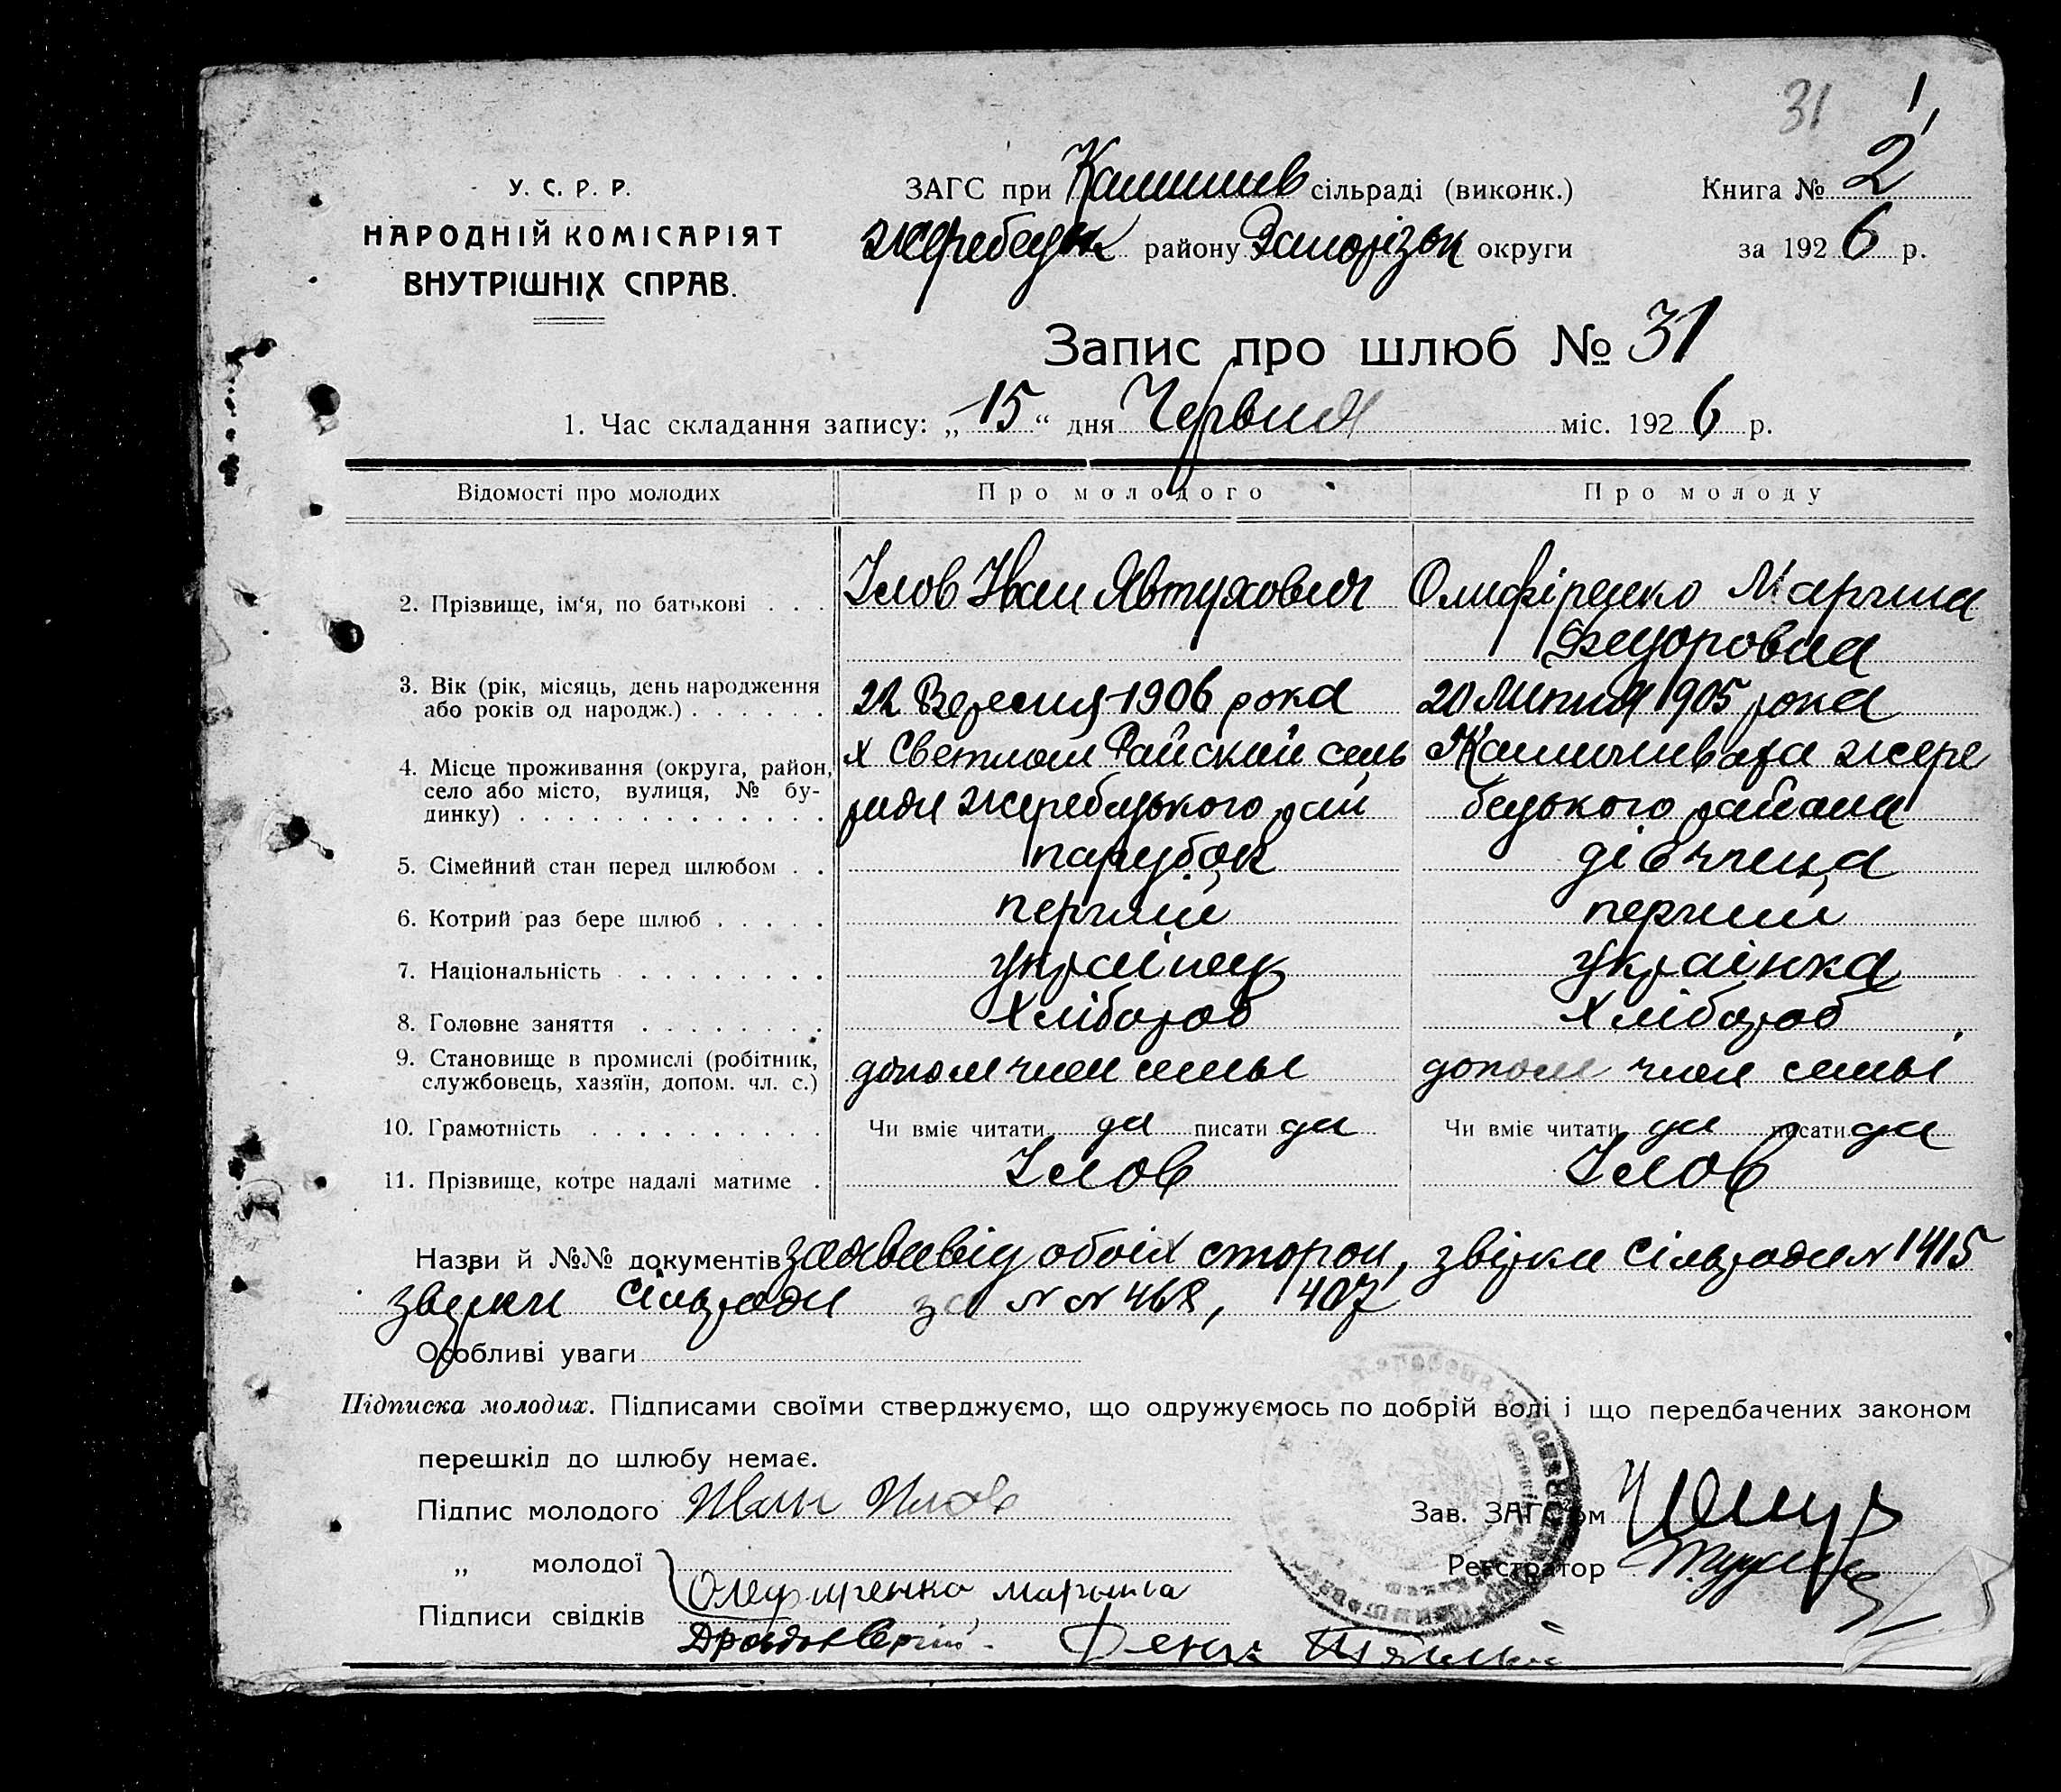 31
У. С. Р. Р.
НАРОДНІЙ КОМІСАРІЯТ
ВНУТРІШНІХ СПРАВ.
ЗАГС при Камишев сільраді (виконк.)
Жеребецьк району Запорізьк округи
Книга № 2
за 1926 р.
Запис про шлюб № 31
1. Час складання запису: „15“ дня Червня міс. 1926 р.
Відомості про молодих Про молодого Про молоду
2. Прізвище, ім'я, по батькові . . . Ілов Іван Явтухович Олифіренко Марина
Федоровна
3. Вік (рік, місяць, день народження
або років од народж.) . . . . . . 22 Вересня 1906 рока 20 Липня 1905 рока
4. Місце проживання (округа, район,
село або місто, вулиця, № бу-
динку) . . . . . . . . . . . . .
х Светлом Райской сель
ради Жеребецького рай
Камишеваха жере
бецького района
5. Сімейний стан перед шлюбом . . парубок дівчица
6. Котрий раз бере шлюб . . . . . перший перший
7. Національність . . . . . . . . . українец українка
8. Головне заняття . . . . . . . . Хлібороб Хлібороб
9. Становище в промислі (робітник,
службовець, хазяїн, допом. чл. с.) допом член семьі допом член семьі
10. Грамотність . . . . . . . . . . Чи вміє читати да писати да Чи вміє читати да писати да
11. Прізвище, котре надалі матиме . Ілов Ілов
Назви й №№ документів заява від обоіх сторон, звірки Сільради № 1415
звірки Сільради за №№ 468, 407
Особливі уваги
Підписка молодих. Підписами своїми стверджуємо, що одружуємось по добрій волі і що передбачених законом
перешкід до шлюбу немає.
Підпис молодого Иван Илов
Зав. ЗАГС'ом
„ молодої
Реєстратор
Олефиренко Марына
Підписи свідків